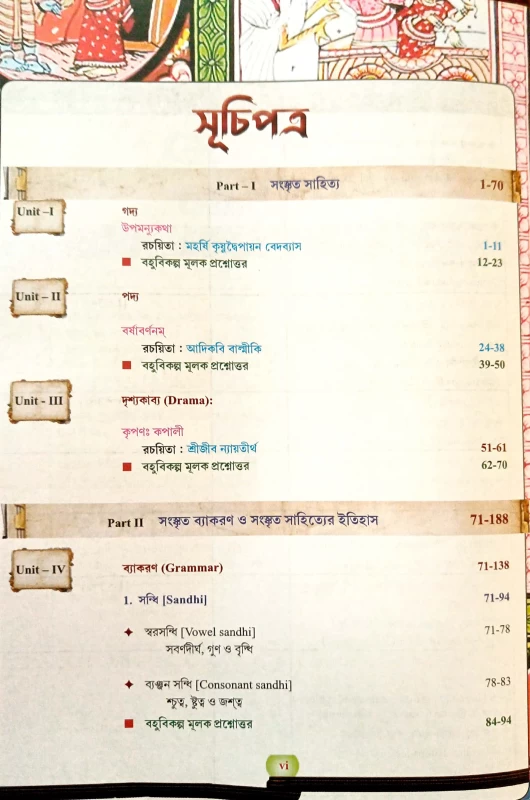 সূচিপত্র
Part – I সংস্কৃত সাহিত্য 1-70
Unit –I গদ্য
উপমন্যুকথা
রচয়িতা : মহর্ষি কৃষ্ণদ্বৈপায়ন বেদব্যাস 1-11
বহুবিকল্প মূলক প্রশ্নোত্তর 12-23
Unit – II পদ্য
বর্ষাবর্ণনম্
রচয়িতা : আদিকবি বাল্মীকি 24-38
বহুবিকল্প মূলক প্রশ্নোত্তর 39-50
Unit - III দৃশ্যকাব্য (Drama):
কৃপণঃ কপালী
রচয়িতা : শ্রীজীব ন্যায়তীর্থ 51-61
বহুবিকল্প মূলক প্রশ্নোত্তর 62-70
Part II সংস্কৃত ব্যাকরণ ও সংস্কৃত সাহিত্যের ইতিহাস 71-188
Unit – IV ব্যাকরণ (Grammar) 71-138
1. সন্ধি [Sandhi] 71-94
স্বরসন্ধি [Vowel sandhi] 71-78
সবর্ণদীর্ঘ, গুণ ও বৃদ্ধি
ব্যঞ্জন সন্ধি [Consonant sandhi] 78-83
শ্চুত্ব, ষ্টুত্ব ও জশ্ত্ব
বহুবিকল্প মূলক প্রশ্নোত্তর 84-94
vi